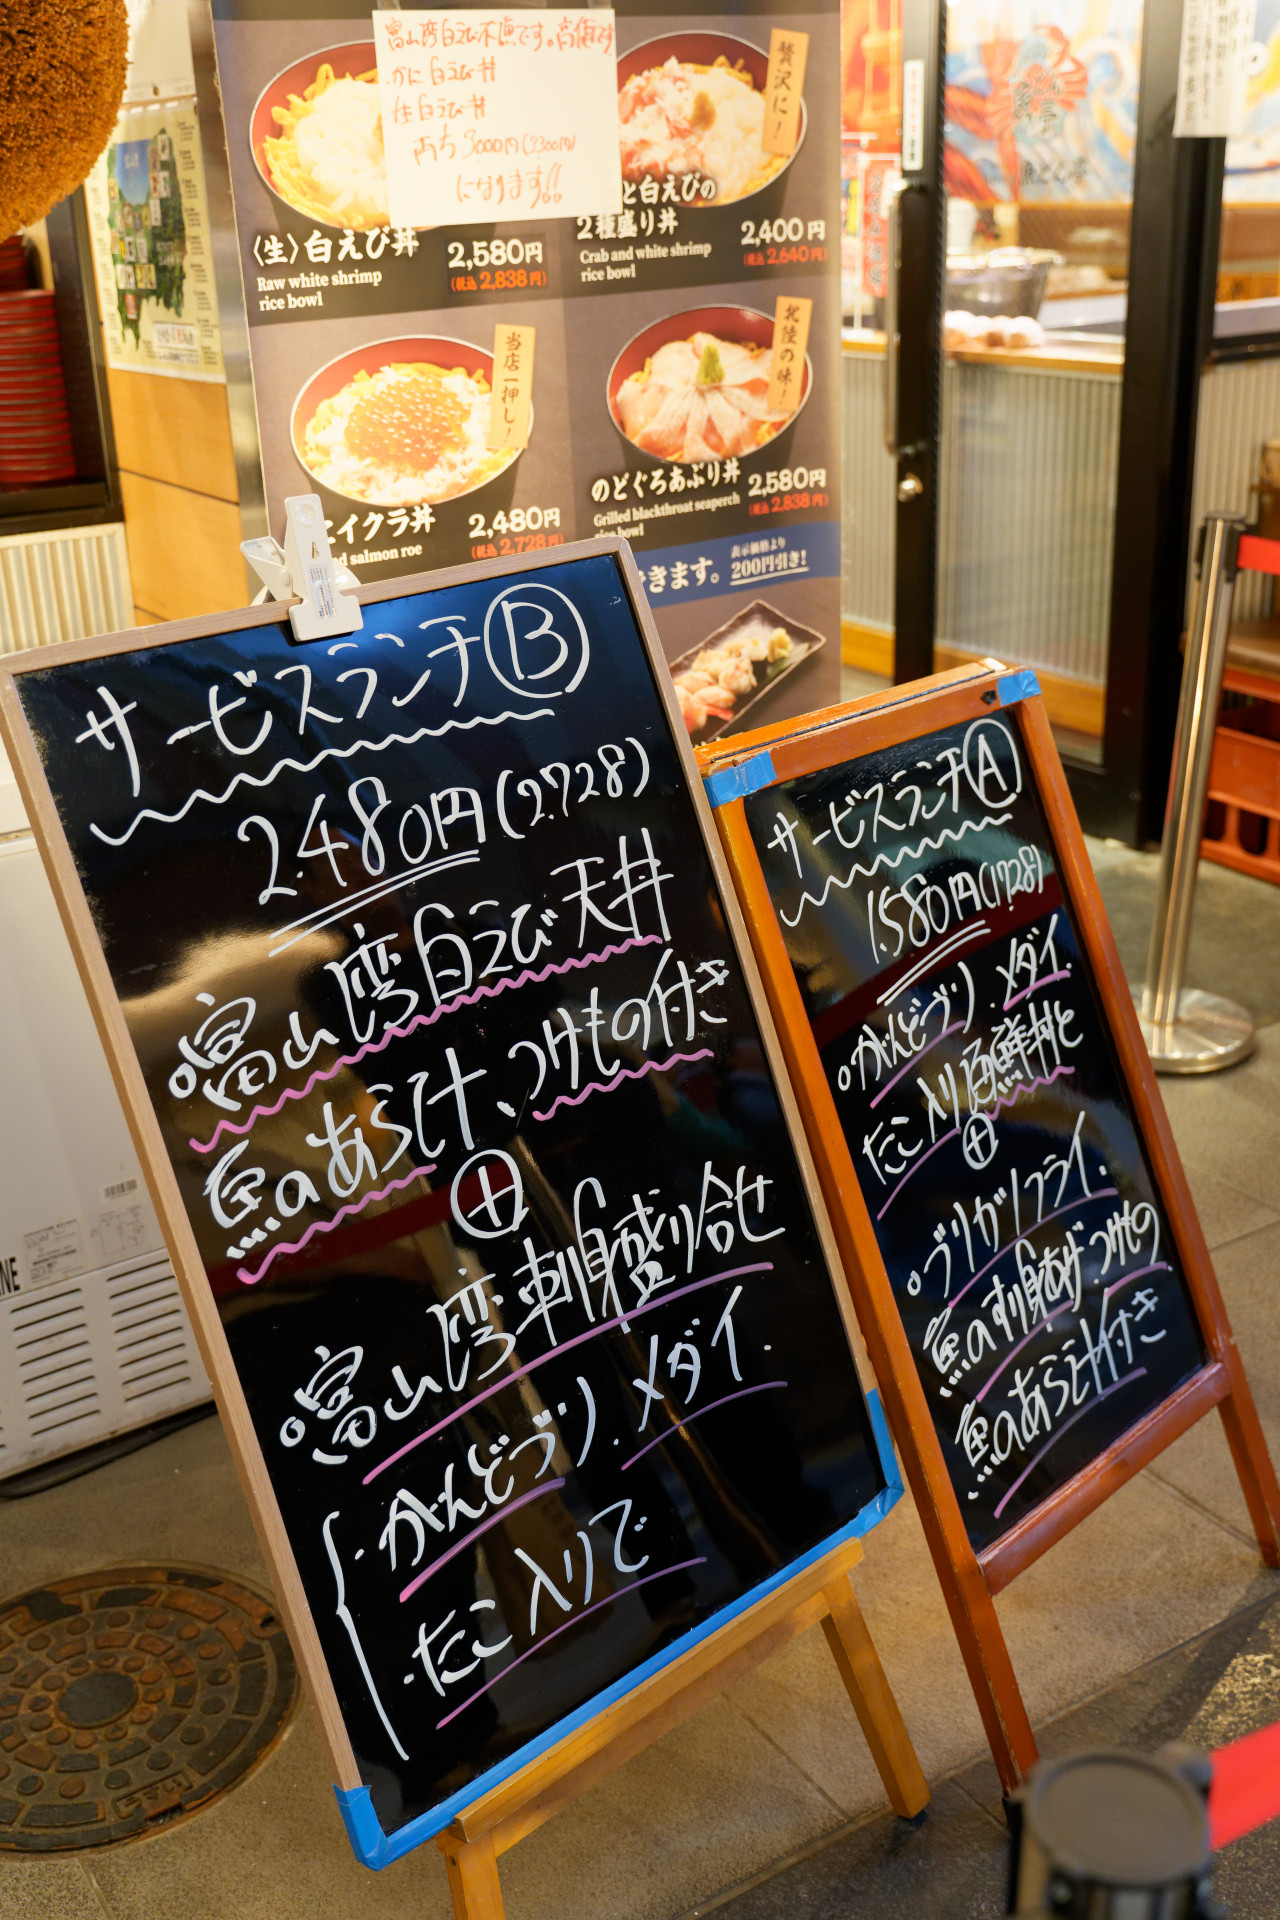 富山湾白えび不漁です。高値です
かに白えび丼
生白えび丼
両方3000円(3300円)
になります!!
〈生〉白えび丼
Raw white shrimp
rice bowl
2,580円
(税込 2,838円)
贅沢に！
と白えびの
2種盛り丼
Crab and white shrimp
rice bowl
2,400円
(税込 2,640円)
当店一押し！
イクラ丼
salmon roe
2,480円
(税込 2,728円)
北陸の味！
のどぐろあぶり丼
Grilled blackthroat seaperch
rice bowl
2,580円
(税込 2,838円)
きます。
表示価格より
200円引き！
サービスランチⒷ
2.480円(2.728)
。富山湾白えび天丼
魚のあら汁、つけもの付き
⊕
。富山湾刺身盛り合せ
・がんどブリ．メダイ．
・たこ入りで
サービスランチⒶ
1.580円(1728)
。がんどブリ．メダイ．
たこ入り海鮮丼と
⊕
。ブリカツフライ．
魚のすり身あげ．つけもの．
魚のあら汁付き
NE